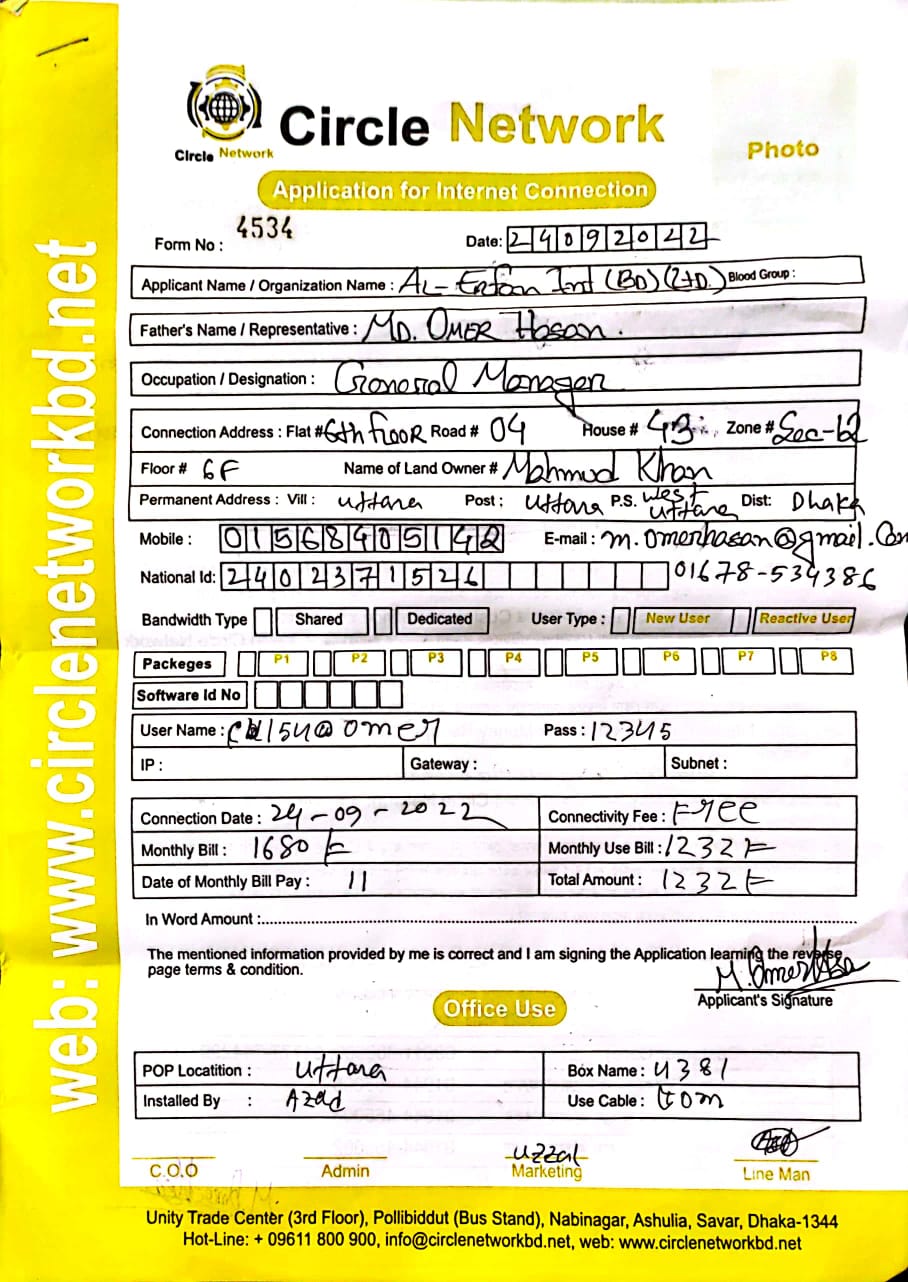 web: www.circlenetworkbd.net
Circle Network
Circle Network
Photo
Application for Internet Connection
Form No : 4534
Date: 24092022
Applicant Name / Organization Name : AL-Erfan Int (BD) (LTD.) Blood Group :
Father's Name / Representative : MD. OMER Hasan.
Occupation / Designation : General Manager
Connection Address : Flat # 6th FlooR Road # 04 House # 43 Zone # Sec-12
Floor # 6F Name of Land Owner # Mahmud Khan
Permanent Address : Vill : uttara Post : uttara P.S. west uttara Dist: Dhaka
Mobile : 01568405142 E-mail : m.omerhasan@gmail.Com
National Id: 2402371526 01678-534386
Bandwidth Type Shared Dedicated User Type : New User Reactive User
Packeges P1 P2 P3 P4 P5 P6 P7 P8
Software Id No
User Name : Pass : 12345
IP : Gateway : Subnet :
Connection Date : 24-09-2022 Connectivity Fee : Free
Monthly Bill : 1680 Monthly Use Bill : 1232
Date of Monthly Bill Pay : 11 Total Amount : 1232
In Word Amount :
The mentioned information provided by me is correct and I am signing the Application learning the reverse
page terms & condition.
M. Omer Hasa
Applicant's Signature
Office Use
POP Locatition : uttara Box Name : U381
Installed By : Azad Use Cable : 40m
uzzal
C.O.O Admin Marketing Line Man
Unity Trade Center (3rd Floor), Pollibiddut (Bus Stand), Nabinagar, Ashulia, Savar, Dhaka-1344
Hot-Line: + 09611 800 900, info@circlenetworkbd.net, web: www.circlenetworkbd.net